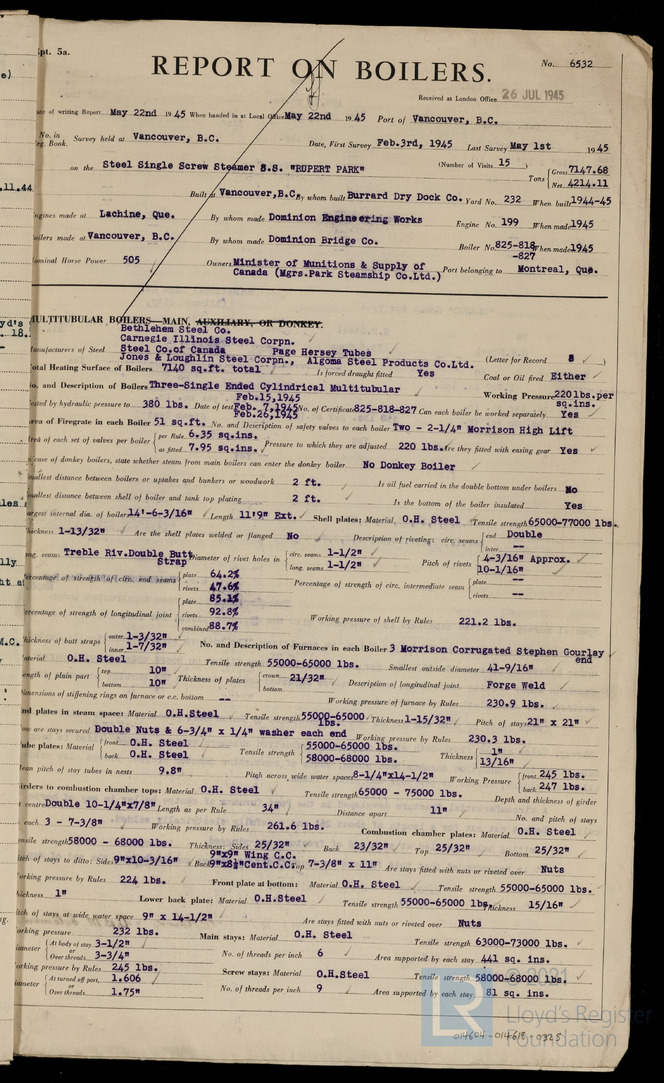 Rpt. 5a.
REPORT ON BOILERS.
No. 6532
Received at London Office 26 JUL 1945
Date of writing Report May 22nd 1945 When handed in at Local Office May 22nd 1945 Port of Vancouver, B.C.
No. in Reg. Book. Survey held at Vancouver, B.C. Date, First Survey Feb.3rd, 1945 Last Survey May 1st 1945
on the Steel Single Screw Steamer S.S. "RUPERT PARK" (Number of Visits 15) Tons Gross 7147.68 Net 4214.11
Built at Vancouver,B.C. By whom built Burrard Dry Dock Co. Yard No. 232 When built 1944-45
Engines made at Lachine, Que. By whom made Dominion Engineering Works Engine No. 199 When made 1945
Boilers made at Vancouver, B.C. By whom made Dominion Bridge Co. Boiler No. 825-818 -827 When made 1945
Nominal Horse Power 505 Owners Minister of Munitions & Supply of Canada (Mgrs.Park Steamship Co.Ltd.) Port belonging to Montreal, Que.
MULTITUBULAR BOILERS—MAIN, AUXILIARY, OR DONKEY.
Bethlehem Steel Co.
Carnegie Illinois Steel Corpn.
Manufacturers of Steel Steel Co.of Canada Page Hersey Tubes
Jones & Loughlin Steel Corpn., Algoma Steel Products Co.Ltd. (Letter for Record S)
Total Heating Surface of Boilers 7140 sq.ft. total Is forced draught fitted Yes Coal or Oil fired Either
No. and Description of Boilers Three-Single Ended Cylindrical Multitubular Working Pressure 220 lbs.per sq.ins.
Tested by hydraulic pressure to 380 lbs. Date of test Feb.15,1945 Feb. 7,1945 Feb.26,1945 No. of Certificate 825-818-827 Can each boiler be worked separately Yes
Area of Firegrate in each Boiler 51 sq.ft. No. and Description of safety valves to each boiler Two - 2-1/4" Morrison High Lift
Area of each set of valves per boiler per Rule 6.35 sq.ins. as fitted 7.95 sq.ins. Pressure to which they are adjusted 220 lbs. Are they fitted with easing gear Yes
In case of donkey boilers, state whether steam from main boilers can enter the donkey boiler No Donkey Boiler
Smallest distance between boilers or uptakes and bunkers or woodwork 2 ft. Is oil fuel carried in the double bottom under boilers No
Smallest distance between shell of boiler and tank top plating 2 ft. Is the bottom of the boiler insulated Yes
Largest internal dia. of boiler 14'-6-3/16" Length 11'9" Ext. Shell plates: Material O.H. Steel Tensile strength 65000-77000 lbs.
Thickness 1-13/32" Are the shell plates welded or flanged No Description of riveting: circ. seams end Double inter. --
Long. seams Treble Riv.Double Butt Strap Diameter of rivet holes in circ. seams 1-1/2" long. seams 1-1/2" Pitch of rivets 4-3/16" Approx. 10-1/16"
Percentage of strength of circ. end seams plate 64.2% rivets 47.6% Percentage of strength of circ. intermediate seam plate -- rivets --
Percentage of strength of longitudinal joint plate 85.1% rivets 92.8% combined 88.7% Working pressure of shell by Rules 221.2 lbs.
Thickness of butt straps outer 1-3/32" inner 1-7/32" No. and Description of Furnaces in each Boiler 3 Morrison Corrugated Stephen Gourlay end
Material O.H. Steel Tensile strength 55000-65000 lbs. Smallest outside diameter 41-9/16"
Length of plain part top 10" bottom 10" Thickness of plates crown bottom 21/32" Description of longitudinal joint Forge Weld
Dimensions of stiffening rings on furnace or c.c. bottom -- Working pressure of furnace by Rules 230.9 lbs.
End plates in steam space: Material O.H.Steel Tensile strength 55000-65000 lbs. Thickness 1-15/32" Pitch of stays 21" x 21"
How are stays secured Double Nuts & 6-3/4" x 1/4" washer each end Working pressure by Rules 230.3 lbs.
Tube plates: Material front O.H. Steel back O.H. Steel Tensile strength 55000-65000 lbs. 58000-68000 lbs. Thickness 1" 13/16"
Mean pitch of stay tubes in nests 9.8" Pitch across wide water spaces 8-1/4"x14-1/2" Working Pressure front 245 lbs. back 247 lbs.
Girders to combustion chamber tops: Material O.H. Steel Tensile strength 65000 - 75000 lbs. Depth and thickness of girder
at centre Double 10-1/4"x7/8" Length as per Rule 34" Distance apart 11" No. and pitch of stays
in each 3 - 7-3/8" Working pressure by Rules 261.6 lbs. Combustion chamber plates: Material O.H. Steel
Tensile strength 58000 - 68000 lbs. Thickness: Sides 25/32" Back 23/32" Top 25/32" Bottom 25/32"
Pitch of stays to ditto: Sides 9"x10-3/16" Back 9"x9" Wing C.C. 9"x8½"Cent.C.C. Top 7-3/8" x 11" Are stays fitted with nuts or riveted over Nuts
Working pressure by Rules 224 lbs. Front plate at bottom: Material O.H. Steel Tensile strength 55000-65000 lbs.
Thickness 1" Lower back plate: Material O.H.Steel Tensile strength 55000-65000 lbs. Thickness 15/16"
Pitch of stays at wide water space 9" x 14-1/2" Are stays fitted with nuts or riveted over Nuts
Working pressure 232 lbs. Main stays: Material O.H. Steel Tensile strength 63000-73000 lbs.
Diameter At body of stay 3-1/2" or Over threads 3-3/4" No. of threads per inch 6 Area supported by each stay 441 sq. ins.
Working pressure by Rules 245 lbs. Screw stays: Material O.H.Steel Tensile strength 58000-68000 lbs.
Diameter At turned off part 1.606 or Over threads 1.75" No. of threads per inch 9 Area supported by each stay 81 sq. ins.
© 2021
Lloyd's Register
Foundation
014604-014618-0325